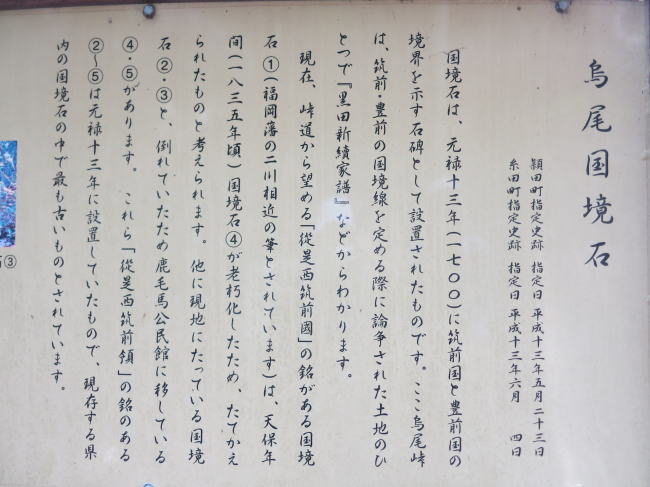 烏尾国境石
頴田町指定史跡 指定日 平成十三年五月二十三日
糸田町指定史跡 指定日 平成十三年六月 四日
国境石は、元禄十三年(一七〇〇)に筑前国と豊前国の
境界を示す石碑として設置されたものです。ここ烏尾峠
は、筑前・豊前の国境線を定める際に論争された土地のひ
とつで『黒田新續家譜』などからわかります。
現在、峠道から望める「從是西筑前國」の銘がある国境
石①(福岡藩の二川相近の筆とされています)は、天保年
間(一八三五年頃)国境石④が老朽化したため、たてかえ
られたものと考えられます。他に現地にたっている国境
石②・③と、倒れていたため鹿毛馬公民館に移している
④・⑤があります。 これら「從是西筑前領」の銘のある
②～⑤は元禄十三年に設置していたもので、現存する県
内の国境石の中で最も古いものとされています。
③